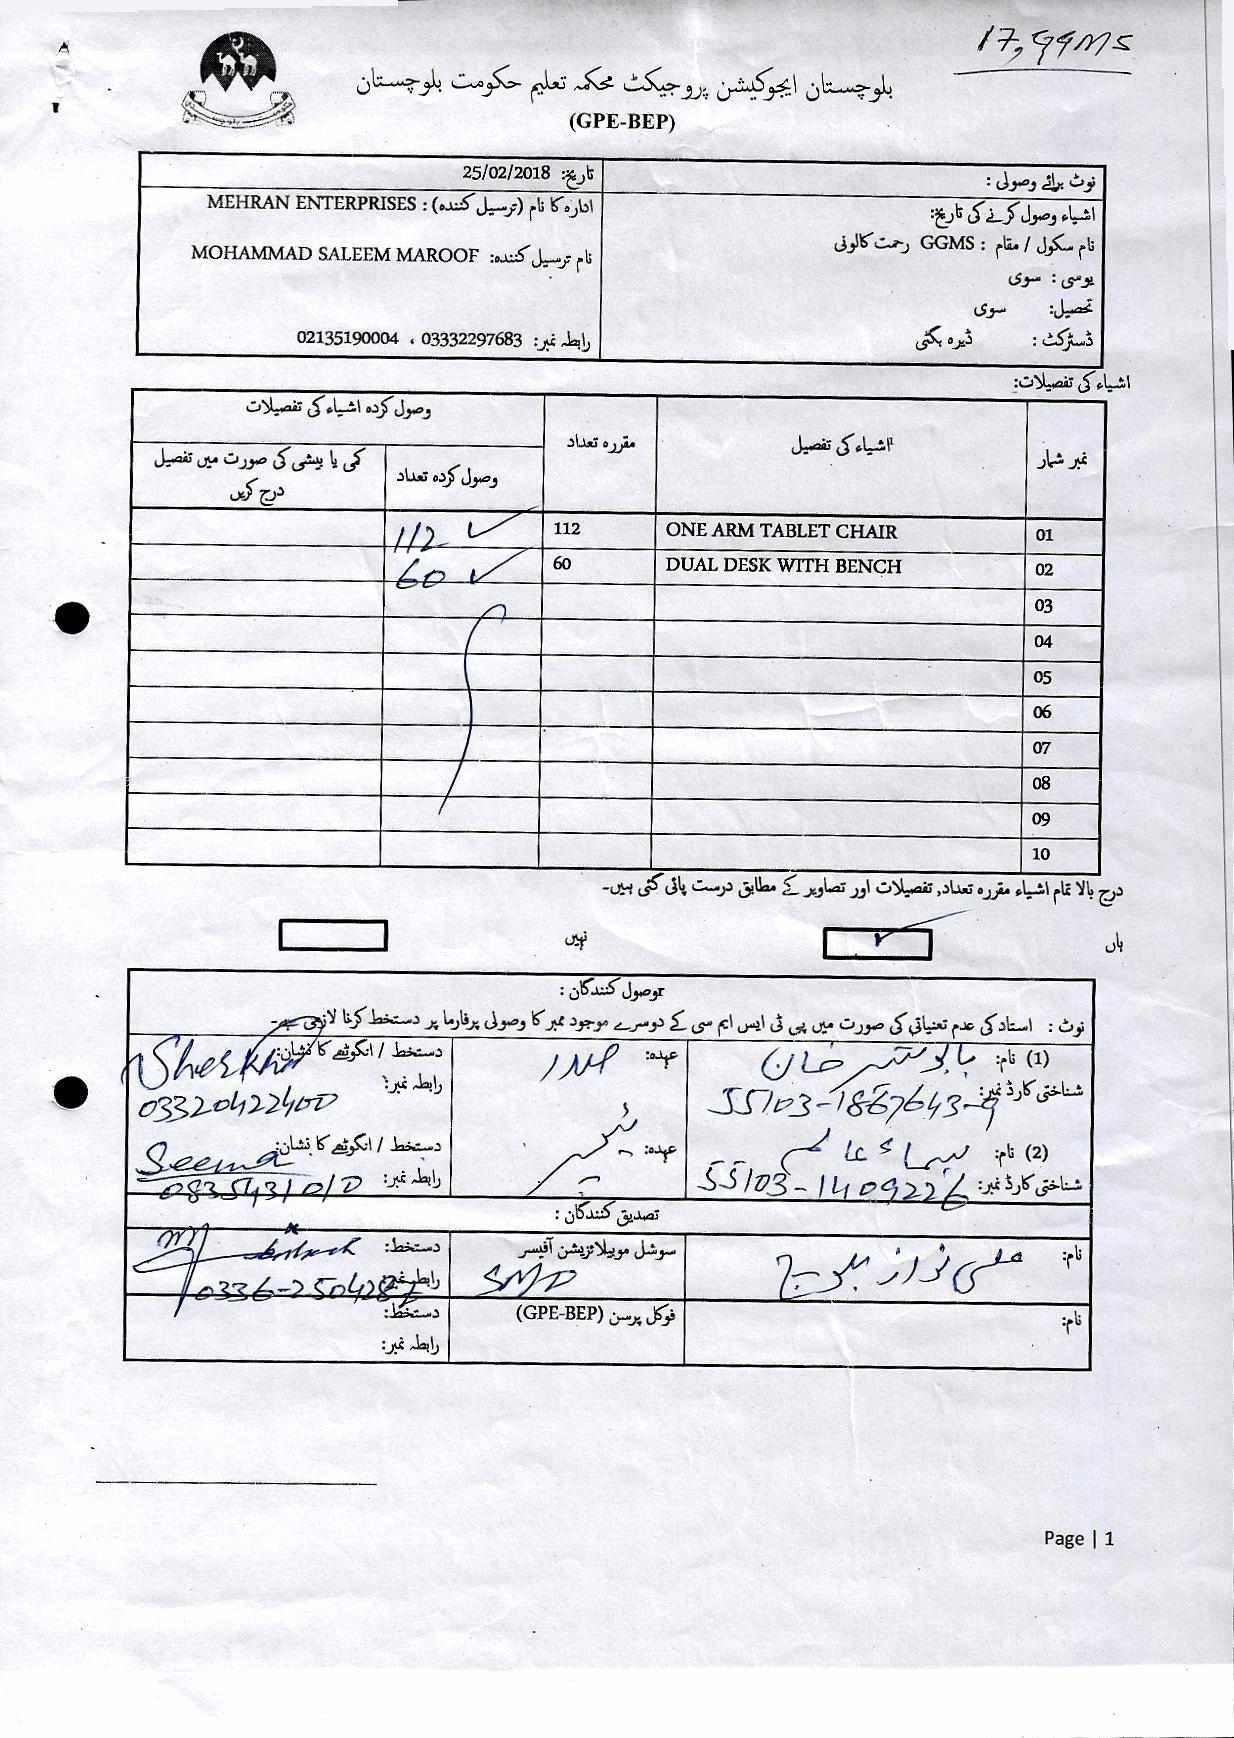 17, GGMS
بلوچستان ایجوکیشن پروجیکٹ محکمہ تعلیم حکومت بلوچستان
(GPE-BEP)
نوٹ برائے وصولی :
اشیاء وصول کرنے کی تاریخ:
نام سکول / مقام : GGMS رحمت کالونی
یوسی : سوی
تحصیل: سوی
ڈسٹرکٹ : ڈیرہ بگٹی
تاریخ: 25/02/2018
ادارہ کا نام (ترسیل کنندہ) : MEHRAN ENTERPRISES
نام ترسیل کنندہ: MOHAMMAD SALEEM MAROOF
رابطہ نمبر: 03332297683 ، 02135190004
اشیاء کی تفصیلات:
نمبر شمار اشیاء کی تفصیل مقررہ تعداد وصول کردہ اشیاء کی تفصیلات
وصول کردہ تعداد کمی یا بیشی کی صورت میں تفصیل درج کریں
01 ONE ARM TABLET CHAIR 112 112 ✓
02 DUAL DESK WITH BENCH 60 60 ✓
03
04
05
06
07
08
09
10
درج بالا تمام اشیاء مقررہ تعداد, تفصیلات اور تصاویر کے مطابق درست پائی گئی ہیں۔
ہاں ✓ نہیں
وصول کنندگان :
نوٹ : استاد کی عدم تعنیاتی کی صورت میں پی ٹی ایس ایم سی کے دوسرے موجود ممبر کا وصولی پرفارما پر دستخط کرنا لازمی ہے۔
(1) نام: خان عہدہ: صدر دستخط / انگوٹھے کا نشان:
شناختی کارڈ نمبر: 55103-1867643-9 رابطہ نمبر: 03320422400
(2) نام: سیماء عالم عہدہ: ٹیچر دستخط / انگوٹھے کا نشان: Seema
شناختی کارڈ نمبر: 55103-1409226 رابطہ نمبر: 0835431010
تصدیق کنندگان :
نام: علی نواز بلوچ سوشل موبیلائزیشن آفیسر دستخط:
SMO رابطہ نمبر:
نام: فوکل پرسن (GPE-BEP) دستخط:
رابطہ نمبر:
Page | 1